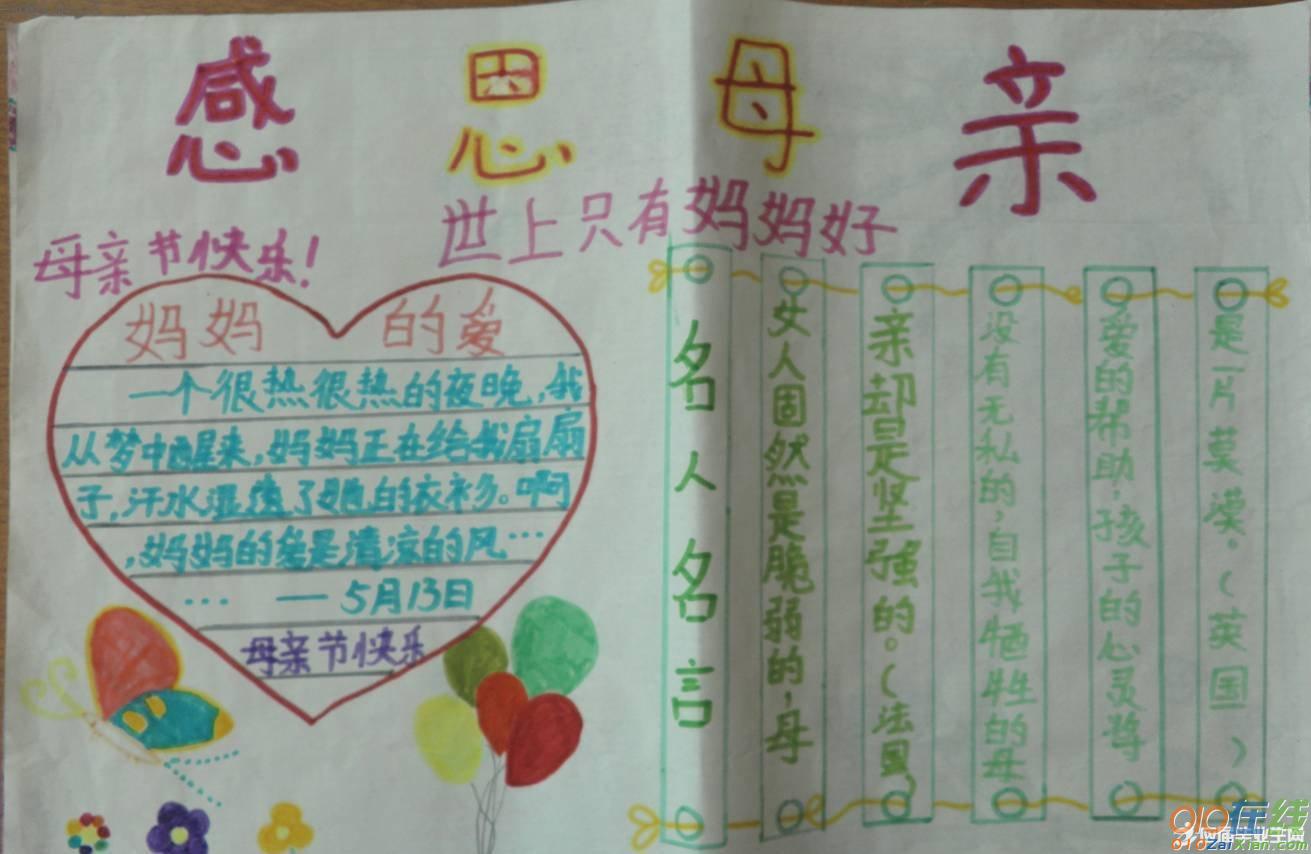 感恩母亲
世上只有妈妈好
母亲节快乐!
妈妈的爱
一个很热很热的夜晚,我
从梦中醒来,妈妈正在给我扇扇
子,汗水湿透了她的衣衫。啊
,妈妈的爱是清凉的风…
… — 5月13日
母亲节快乐
名人名言
女人固然是脆弱的,母
亲却是坚强的。(法国)
没有无私的,自我牺牲的母
爱的帮助,孩子的心灵将
是一片莫漠.(英国)
910在线
910ZaiXian.com